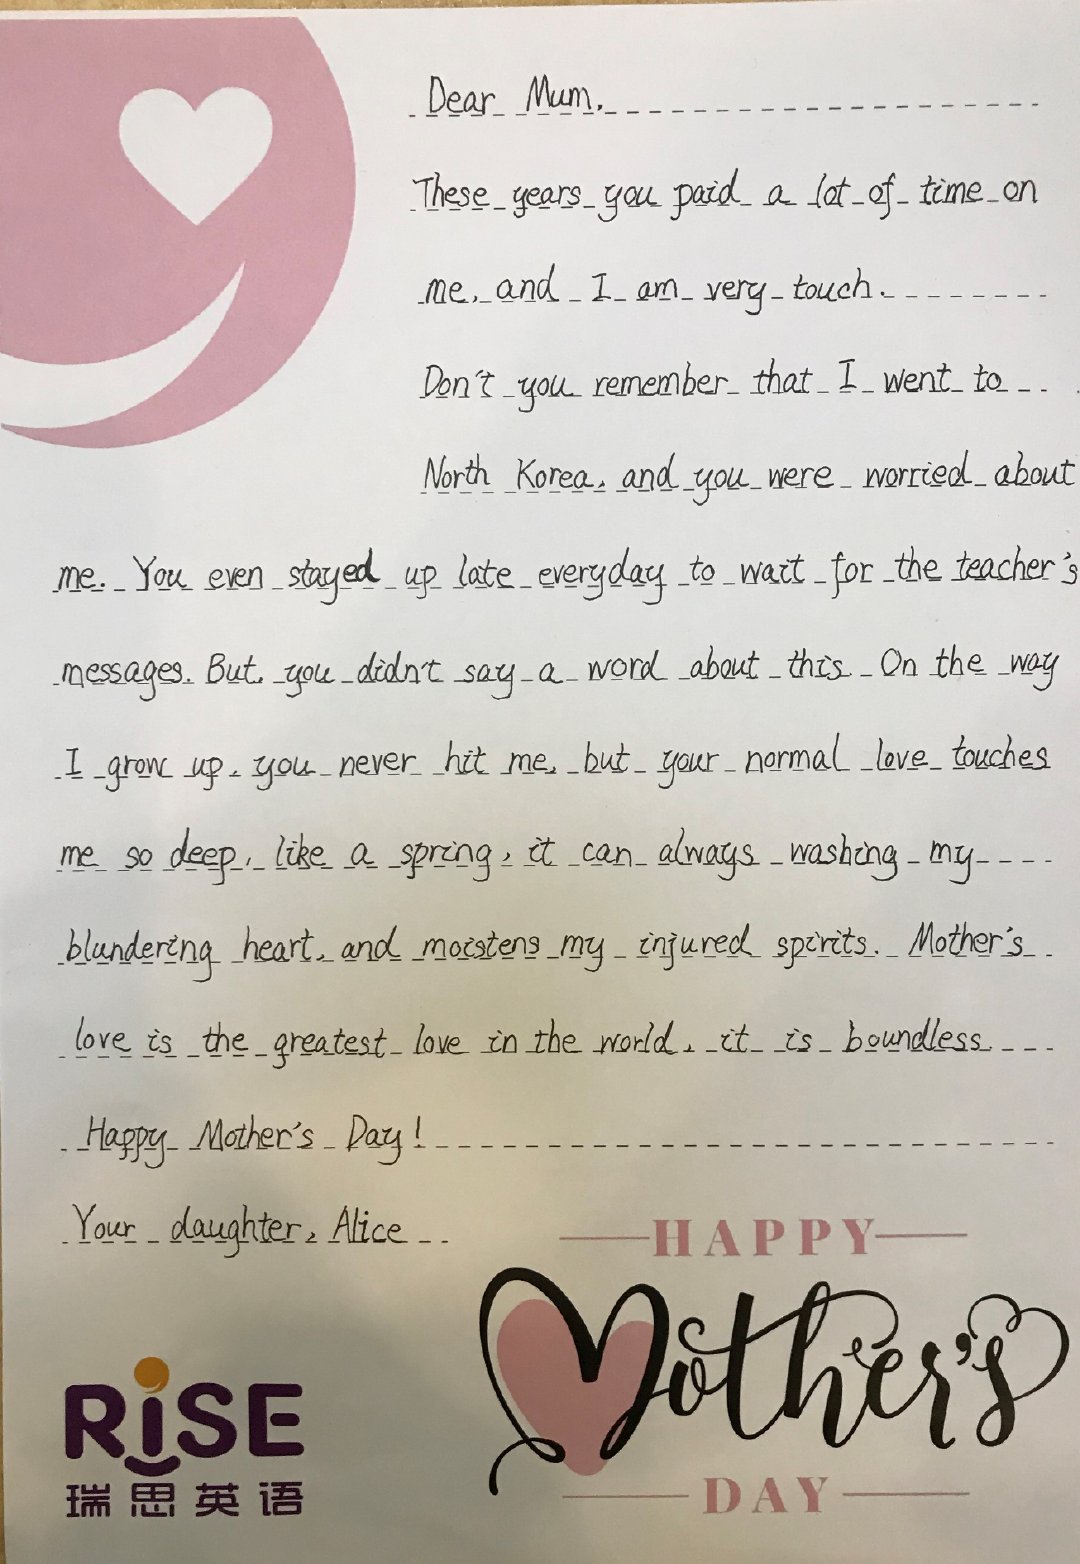 Dear Mum,
These years you paid a lot of time on
me, and I am very touch.
Don't you remember that I went to
North Korea, and you were worried about
me. You even stayed up late everyday to wait for the teacher's
messages. But, you didn't say a word about this. On the way
I grow up, you never hit me, but your normal love touches
me so deep, like a spring, it can always washing my
blundering heart, and moistens my injured spirits. Mother's
love is the greatest love in the world, it is boundless.
Happy Mother's Day!
Your daughter, Alice
HAPPY
Mother's
DAY
RISE
瑞思英语